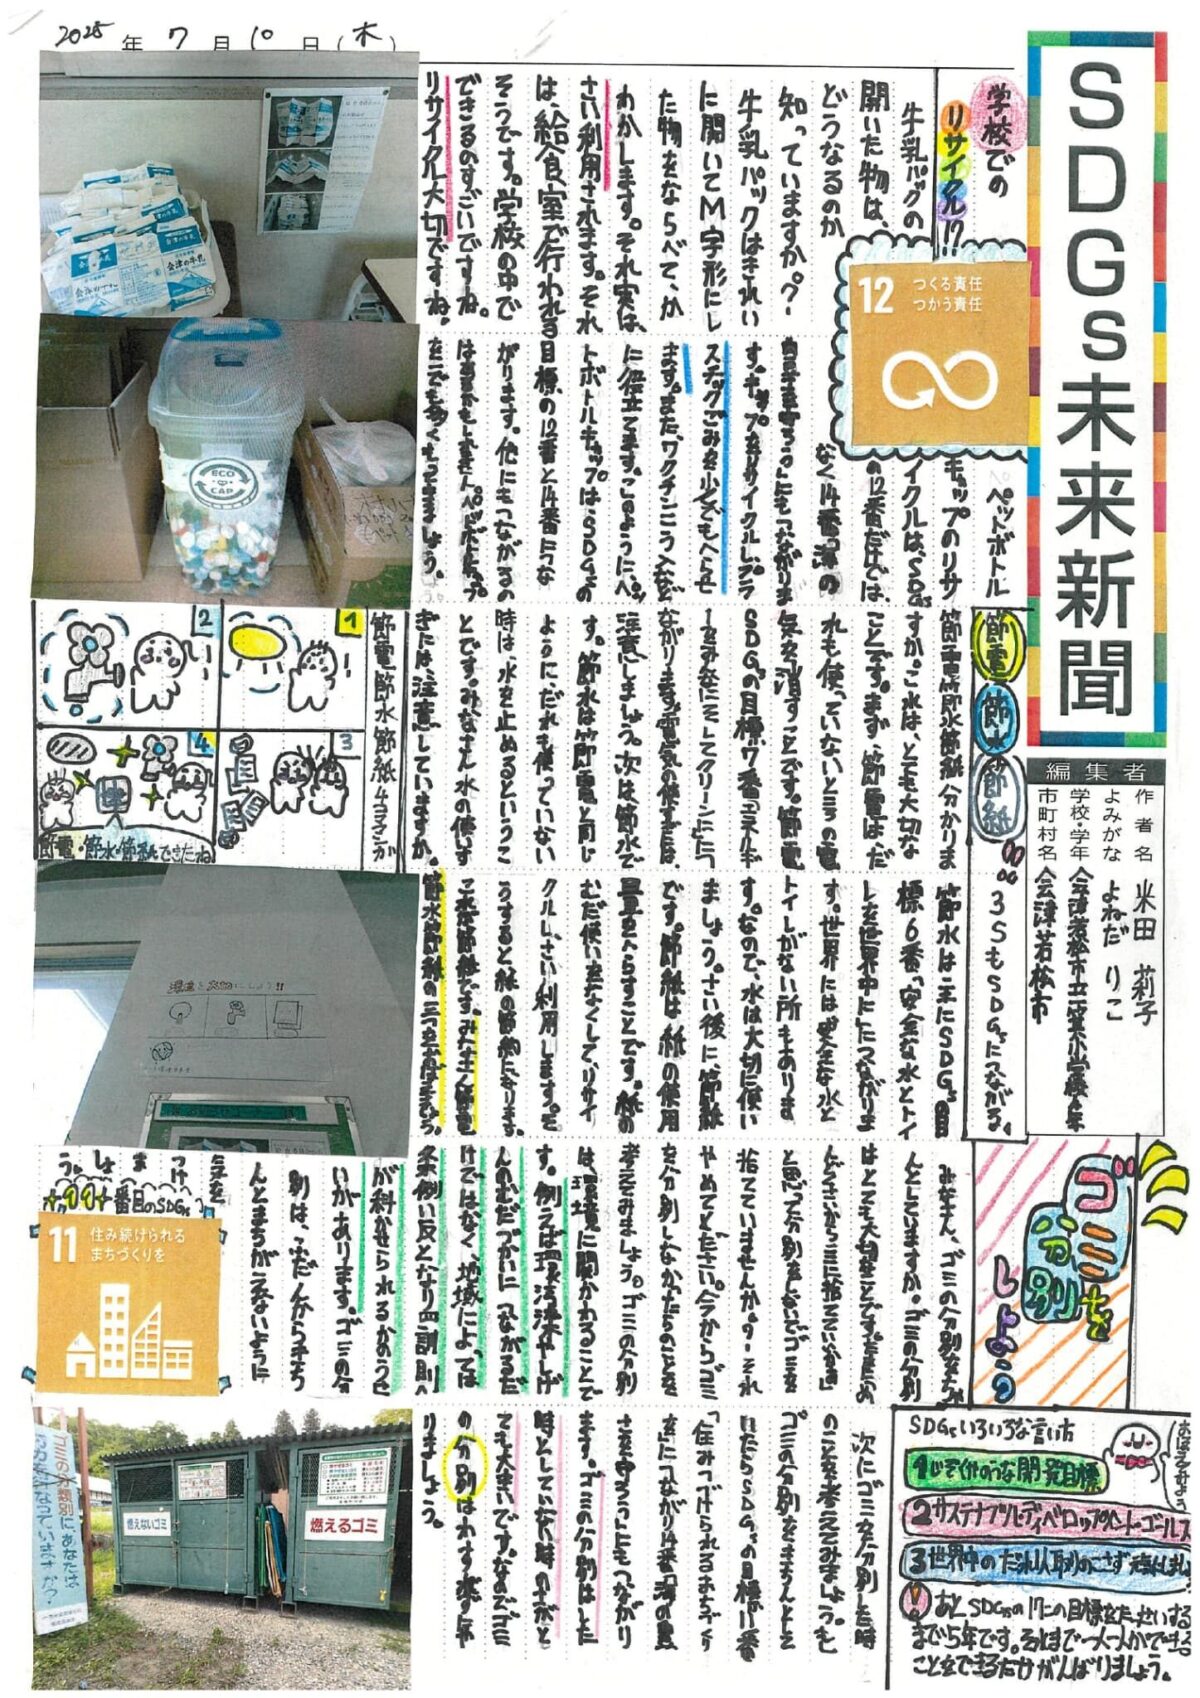 2025年7月10日(木)
SDGs未来新聞
編集者
作者名 米田 莉子
よみがな よねだ りこ
学校・学年 会津若松市立一箕小学校六年
市町村名 会津若松市
学校での
リサイクル!?
牛乳パックの
開いた物は、
どうなるのか
知っていますか?
牛乳パックはきれい
に開いてM字形にし
た物をならべて、か
わかします。それ実は、
さい利用されます。それ
は、給食室で行われる
そうです。学校の中で
できるのすごいですよね。
リサイクル大切ですね。
12 つくる責任
つかう責任
ペットボトル
キャップのリサ
イクルは、SDGs
の12番だけでは、
なく14番「海の
豊かさを守ろう」にもつながりま
す。キャップをリサイクルしプラ
スチックごみを少しでもへらせ
ます。また、ワクチンこう入など
に役立てます。このようにペッ
トボトルキャップはSDGsの
目標の12番と14番につな
がります。他にもつながるの
はあるかもしれません。ペットボトルキャップ
ECO CAP
会津の牛乳
節電
節水
節紙!!
3SもSDGsにつながる。
節電節水節紙分かりま
すか。これは、とても大切な
ことです。まず、節電は、だ
れも使っていないところの電
気を消すことです。節電は
SDGsの目標7番「エネルギ
ーをみんなにそしてクリーンに」につ
ながります。電気の使いすぎには、
注意しましょう。次は節水で
す。節水は節電と同じ
ようにだれも使っていない
時は、水を止めるというこ
とです。みなさん水の使いす
ぎには、注意していますか。
節電節水節紙4コマまんが
1
2
3
4
節電・節水・節紙できたね
節水はおもにSDGsの目
標6番「安全な水とトイ
レを世界中に」につながりま
す。世界には安全な水と
トイレがない所もありま
す。なので、水は大切に使い
ましょう。さい後に、節紙
です。節紙は紙の使用
量をへらすことです。紙の
むだ使いをなくして、リサイ
クルし、さい利用します。そ
うすると紙の節約になります。
これが節紙です。みなさん節電
節水節紙の三つを心がけましょう。
ゴミ
分別を
しよう
みなさん、ゴミの分別をちゃ
んとしていますか。ゴミの分別
はとても大切なことです。
んどくさいからゴミに捨てていいかぁ」
と思って分別をしないでゴミを
捨てていませんか。
やめてください。今からゴミ
を分別しなかったらのことを
考えてみましょう。ゴミの分別
は、環境に関かわることで
す。例えば環境汚染やしげ
んのむだづかいにつながるだ
けではなく、地域によっては
条例い反となり罰則
が科せられるかのうせ
いがあります。ゴミの分
別は、ふだんからきち
んとまちがえないように
気を
つけ
ましょ
う。
11番目のSDGs
11 住み続けられる
まちづくりを
次にゴミを分別した時
のことを考えてみましょう。も
ゴミの分別をきちんとして
いたらSDGsの目標11番
「住みつづけられるまちづくり
を」につながり14番「海の豊
かさを守ろう」にもつながり
ます。ゴミの分別はした
時としていない時の差がと
ても大きいです。なのでゴミ
の分別はわすれずに
やりましょう。
ゴミの分類別にあなたは
燃えないゴミ
燃えるゴミ
SDGsいろいろな言い方
1 じぞくかのうな開発目標
2 サステナブル・ディベロップメント・ゴールズ
3 世界中のだれ1人取りのこさず
おぼえてみよう
あとSDGsの17この目標をたっせいする
まで5年です。それまで一人一人ができる
ことをできるだけがんばりましょう。